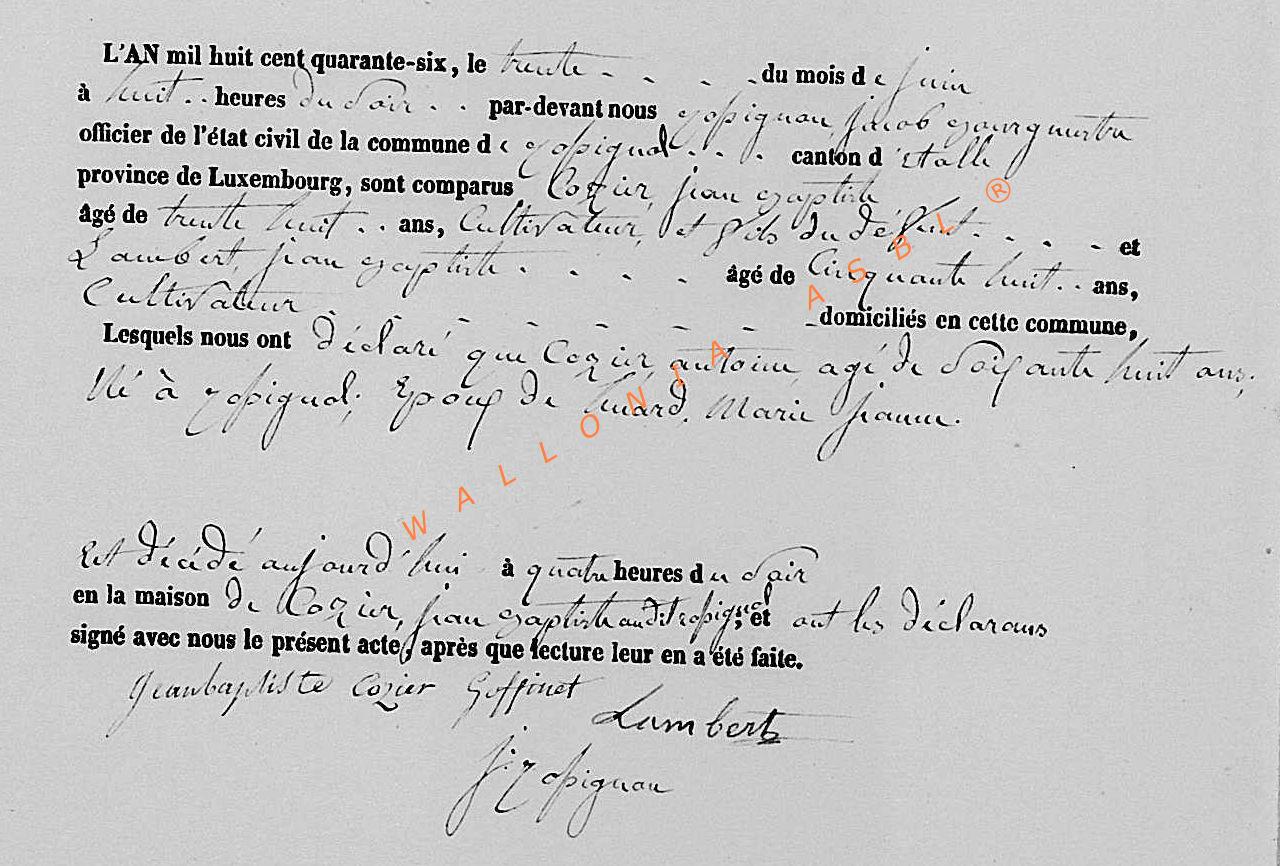 L'AN mil huit cent quarante-six, le trente . . . . du mois de juin
à huit . . heures du soir . . par-devant nous Rossignon, Jacob Bourgmestre
officier de l'état civil de la commune de Rossignol . . . canton d'étalle
province de Luxembourg, sont comparus Cozier, jean Baptiste
âgé de trente huit . . ans, Cultivateur, et fils du défunt . . . . et
Lambert, jean Baptiste . . . . âgé de Cinquante huit . . ans,
Cultivateur - - - - - - - - domiciliés en cette commune,
Lesquels nous ont déclaré que Cozier, antoine, agé de Soixante huit ans,
Né à Rossignol, Epoux de huard, Marie jeanne.
Est décédé aujourd'hui à quatre heures du Soir
en la maison de Cozier, jean Baptiste audit rossignol, et ont les déclarans
signé avec nous le présent acte, après que lecture leur en a été faite.
Jeanbaptiste Cozier Goffinet
Lambert
J. Rossignon
WALLONIA ASBL ®